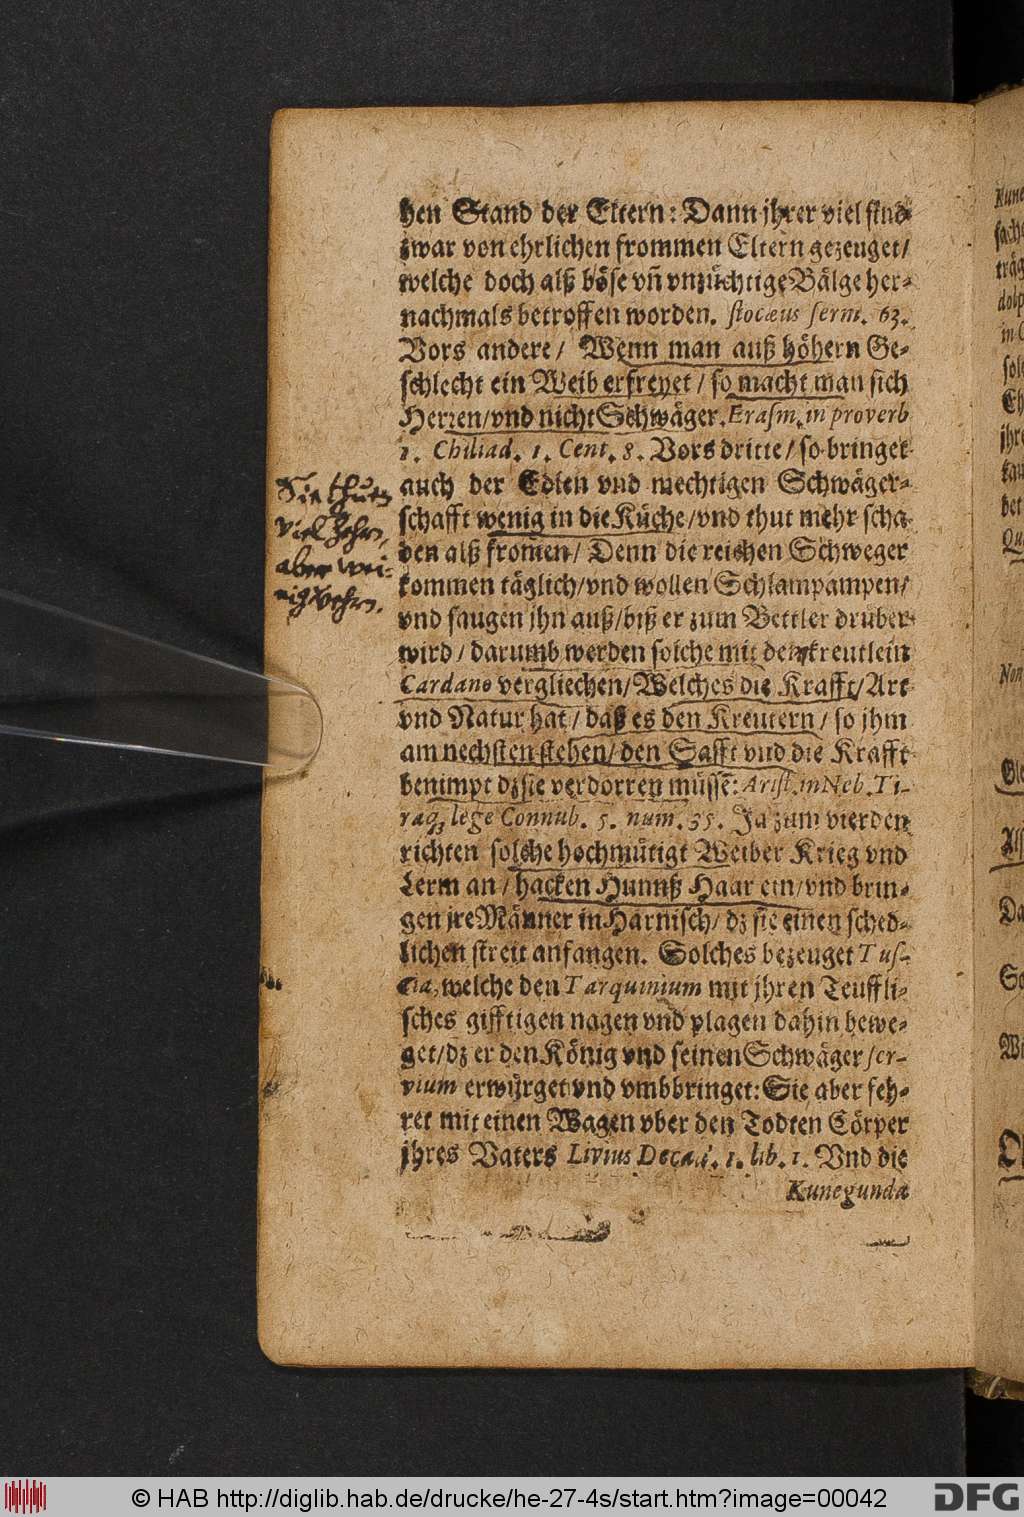 hen Stand der Eltern: Dann jhrer viel sind
zwar von ehrlichen frommen Eltern gezeuget/
welche doch alß böse vñ vnzüchtige Bälge her-
nachmals betroffen worden. stocæus serm. 63.
Vors andere/ Wenn man auß höhern Ge-
schlecht ein Weib erfreyet/ so macht man sich
Herren/vnd nicht Schwäger. Erasm. in proverb
1. Chiliad. 1. Cent. 8. Vors dritte/ so bringet
auch der Edlen vnd mechtigen Schwäger-
schafft wenig in die Küche/vnd thut mehr scha-
den alß fromen/ Denn die reichen Schweger
kommen täglich/vnd wollen Schlampampen/
vnd saugen jhn auß/biß er zum Bettler drüber
wird/ darumb werden solche mit dem kreutlein
Cardano vergliechen/Welches die Krafft/Art
vnd Natur hat/ daß es den Kreutern/ so jhm
am nechsten stehen/ den Safft vnd die Krafft
benimpt dz sie verdorren müssẽ: Arist. in Neb. Ti-
raq; lege Connub. 5. num. 35. Ja zum vierden
richten solche hochmütigt Weiber Krieg vnd
Lerm an/ hacken Hunnß Haar ein/vnd brin-
gen jre Männer in Harnisch/ dz sie einen sched-
lichen streit anfangen. Solches bezeuget Tus-
cia, welche den Tarquinium mit jhren Teuffli-
sches gifftigen nagen vnd plagen dahin bewe-
get/dz er den König vnd seinen Schwäger ser-
vium erwürget vnd vmbbringet: Sie aber feh-
ret mit einen Wagen vber den Todten Cörper
jhres Vaters Livius Decad. 1. lib. 1. Vnd die
Kunegunda
Sie thuen
viel Zehrn,
aber wei-
nig
© HAB http://diglib.hab.de/drucke/he-27-4s/start.htm?image=00042
DFG